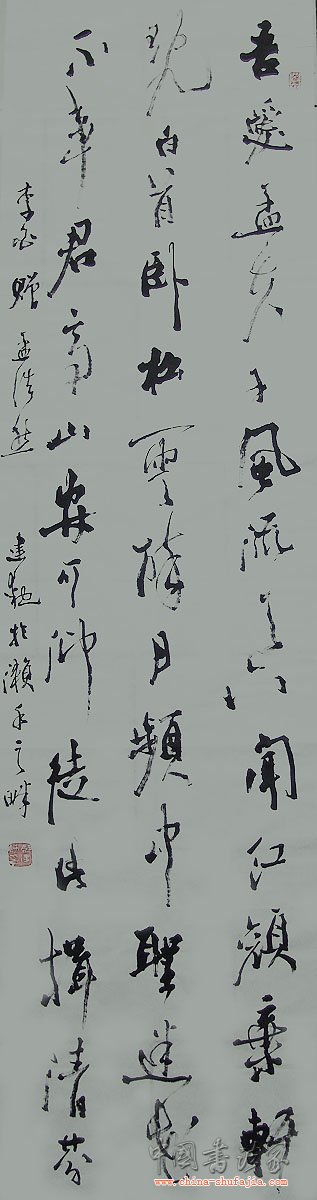 吾愛孟夫子風流天下聞紅顏棄軒
冕白首卧松雲醉月頻中聖迷花
不事君高山安可仰徒此揖清芬
李白贈孟浩然 建於瀨水之畔
中国书法家
www.china-shufajia.com